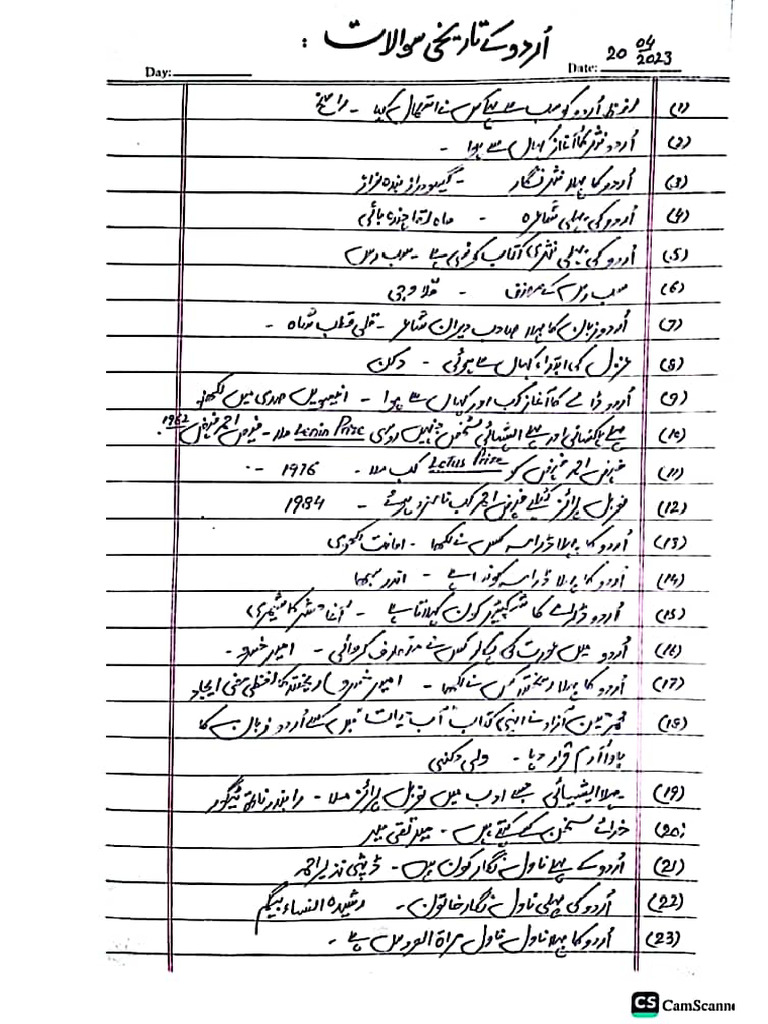 اُردو کے تاریخی سوالات :
Day:
Date: 20 04 2023
(1) لفظ اُردو کو سب سے پہلے کس نے استعمال کیا -
(2) اردو نثر کا آغاز کہاں سے ہوا -
(3) اُردو کا پہلا نثر نگار - گیسو دراز بندہ نواز
(4) اُردو کی پہلی شاعرہ - ماہ لقا چندا بائی
(5) اُردو کی پہلی نثری کتاب کونسی ہے - سب رس
(6) سب رس کے مصنف - مُلا وجہی
(7) اُردو زبان کا پہلا صاحب دیوان شاعر - قلی قطب شاہ -
(8) غزل کی ابتداء کہاں سے ہوئی - دکن
(9) اُردو ڈرامے کا آغاز کب اور کہاں سے ہوا - انیسویں صدی میں لکھنؤ
(10) پہلے پاکستانی اور پہلے ایشیائی شخص جنہیں روسی Lenin Prize ملا - فیض احمد فیض 1962
(11) فیض احمد فیض کو Letus Prize کب ملا - 1976 -
(12) نوبل پرائز کیلئے فیض احمد کب نامزد ہوئے - 1984
(13) اُردو کا پہلا ڈرامہ کس نے لکھا - امانت لکھنوی
(14) اُردو کا پہلا ڈرامہ کونسا ہے - اندر سبھا
(15) اُردو ڈرامے کا شیکسپیئر کون کہلاتا ہے - آغا حشر کاشمیری
(16) اُردو میں عورت کی پکار کس نے متعارف کروائی - امیر خسرو -
(17) اُردو کا پہلا ریختہ کس نے لکھا - امیر خسرو ریختہ کا لفظی معنی ایجاد
(18) محمد حسین آزاد نے اپنی کتاب "آب حیات" میں کسے اُردو زبان کا
باوا آدم قرار دیا - ولی دکنی
(19) پہلا ایشیائی جسے ادب میں نوبل پرائز ملا - رابندر ناتھ ٹیگور
(20) خدائے سخن کسے کہتے ہیں - میر تقی میر
(21) اُردو کے پہلے ناول نگار کون ہیں - ڈپٹی نذیر احمد
(22) اُردو کی پہلی ناول نگار خاتون - رشیدۃ النساء بیگم
(23) اُردو کا پہلا ناول ناول مراۃ العروس ہے -
CS CamScanne